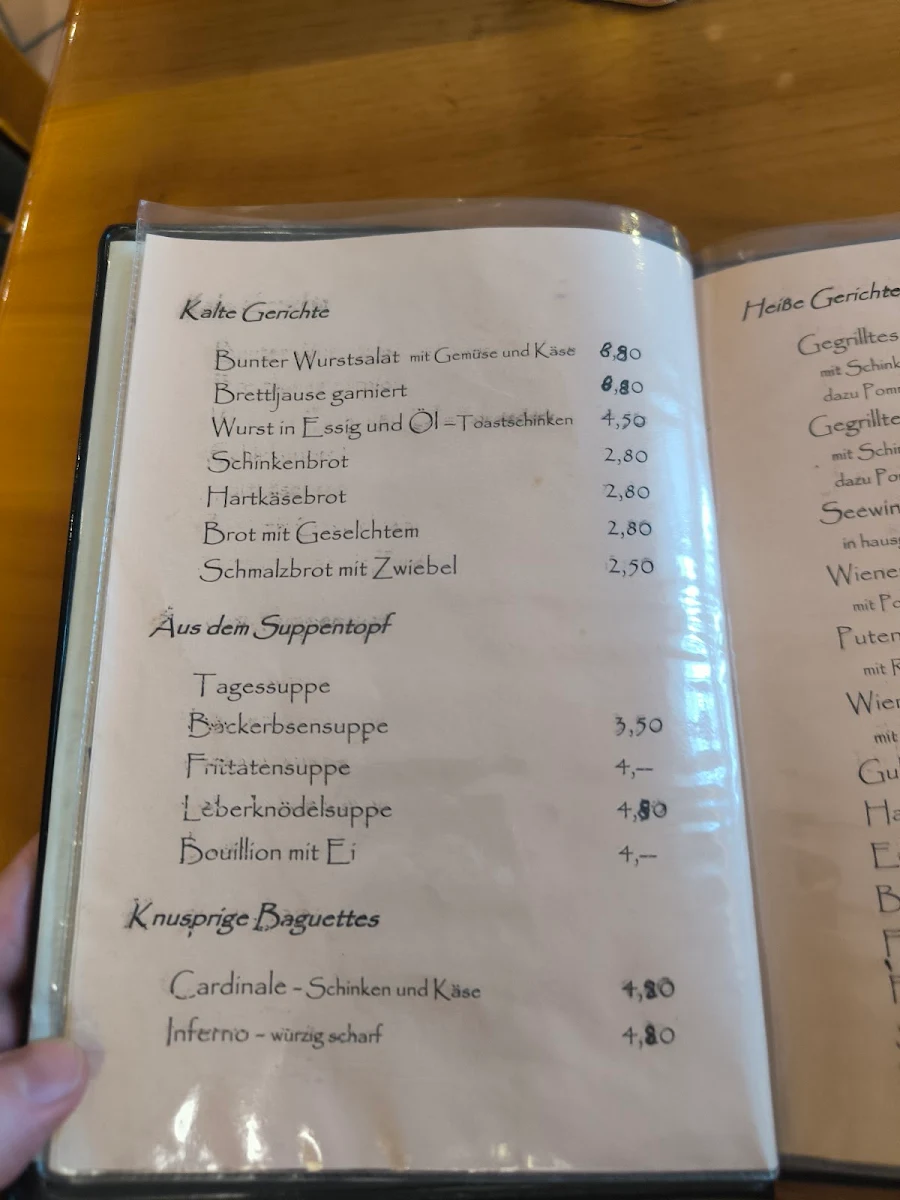 Kalte Gerichte
Bunter Wurstsalat mit Gemüse und Käse 8,80
Brettljause garniert 8,80
Wurst in Essig und Öl – Toastschinken 4,50
Schinkenbrot 2,80
Hartkäsebrot 2,80
Brot mit Geselchtem 2,80
Schmalzbrot mit Zwiebel 2,50
Aus dem Suppentopf
Tagessuppe
Backerbsensuppe 3,50
Frittatensuppe 4,--
Leberknödelsuppe 4,80
Bouillion mit Ei 4,--
Knusprige Baguettes
Cardinale - Schinken und Käse 4,80
Inferno - würzig scharf 4,80
Heiße Gerichte
Gegrilltes
mit Schink
dazu Pom
Gegrillte
mit Schi
dazu Po
Seewin
in haus
Wiene
mit Po
Puten
mit
Wie
mit
Gu
Ha